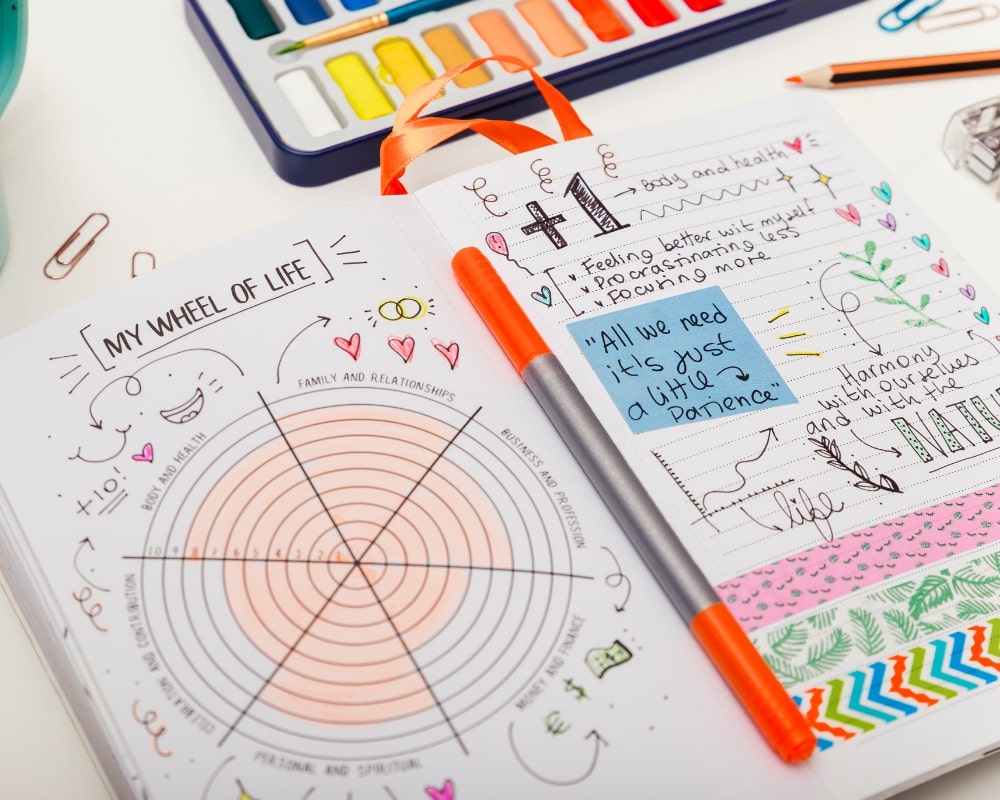 MY WHEEL OF LIFE
FAMILY AND RELATIONSHIPS
BUSINESS AND PROFESSION
MONEY AND FINANCE
PERSONAL AND SPIRITUAL
CELEBRATION AND CONTRIBUTION
BODY AND HEALTH
+10!
10 9 8 7 6 5 4 3 2 1
+1 → Body and health
Feeling better wit myself
Procrastinating less
Focusing more
"All we need
it's just
a little
Patience"
Harmony
with ourselves
and with the
life